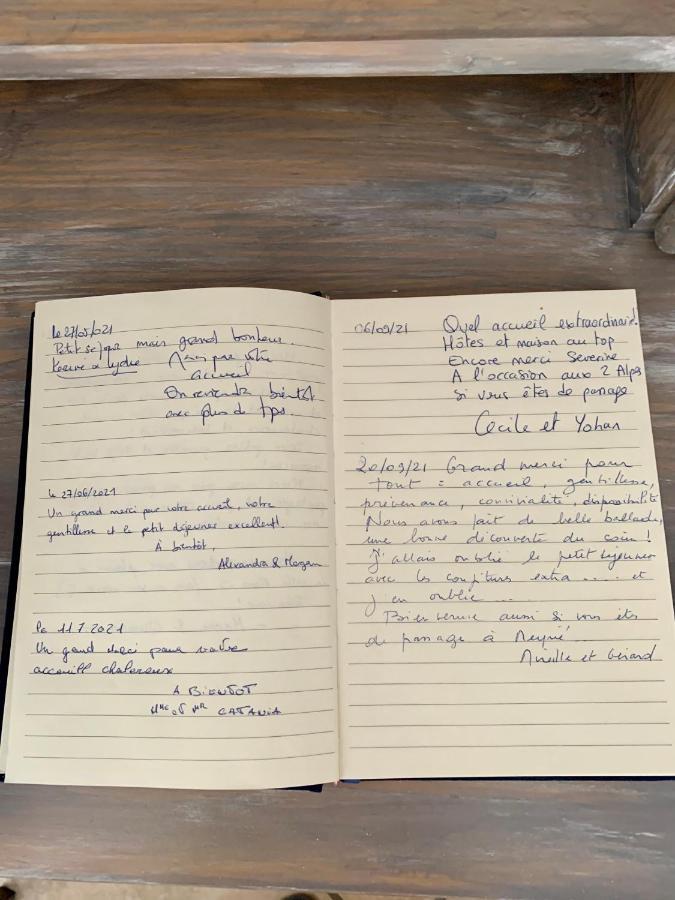 Le 27/05/2021
Petit séjour mais grand bonheur.
& Lydie Merci pour votre
accueil
On reviendra bientôt
avec plus de tps.
Le 27/06/2021
Un grand merci pour votre accueil, votre
gentillesse et le petit déjeuner excellent!
À bientôt,
Alexandra & Morgan
Le 11.7.2021
Un grand merci pour votre
accueill chaleureux
A BIENTOT
Mme et Mr CATANIA
06/09/21 Quel accueil extraordinaire!
Hôtes et maison au top
Encore merci Severine
A l'occasion aux 2 Alpes
si vous êtes de passage
Cecile et Yohan
20/09/21 Grand merci pour
tout : accueil, gentillesse,
prévenance, convivialité, disponibilité
Nous avons fait de belle ballades,
une bonne découverte du coin !
J'allais oublié le petit déjeuner
avec les confitures extra .... et
j'en oublie ....
Bienvenue aussi si vous êts
de passage à
Mireille et Gérard